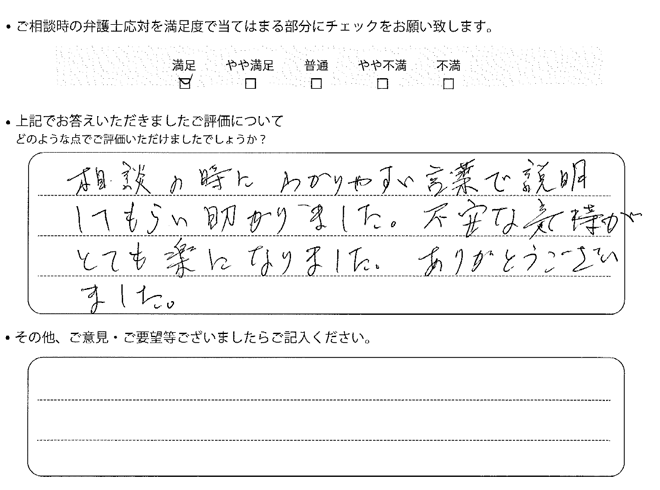 • ご相談時の弁護士応対を満足度で当てはまる部分にチェックをお願い致します。
満足 やや満足 普通 やや不満 不満
• 上記でお答えいただきましたご評価について
どのような点でご評価いただけましたでしょうか？
相談の時に わかりやすい言葉で説明
してもらい助かりました。不安な気持が
とても楽になりました。ありがとうござい
ました。
• その他、ご意見・ご要望等ございましたらご記入ください。